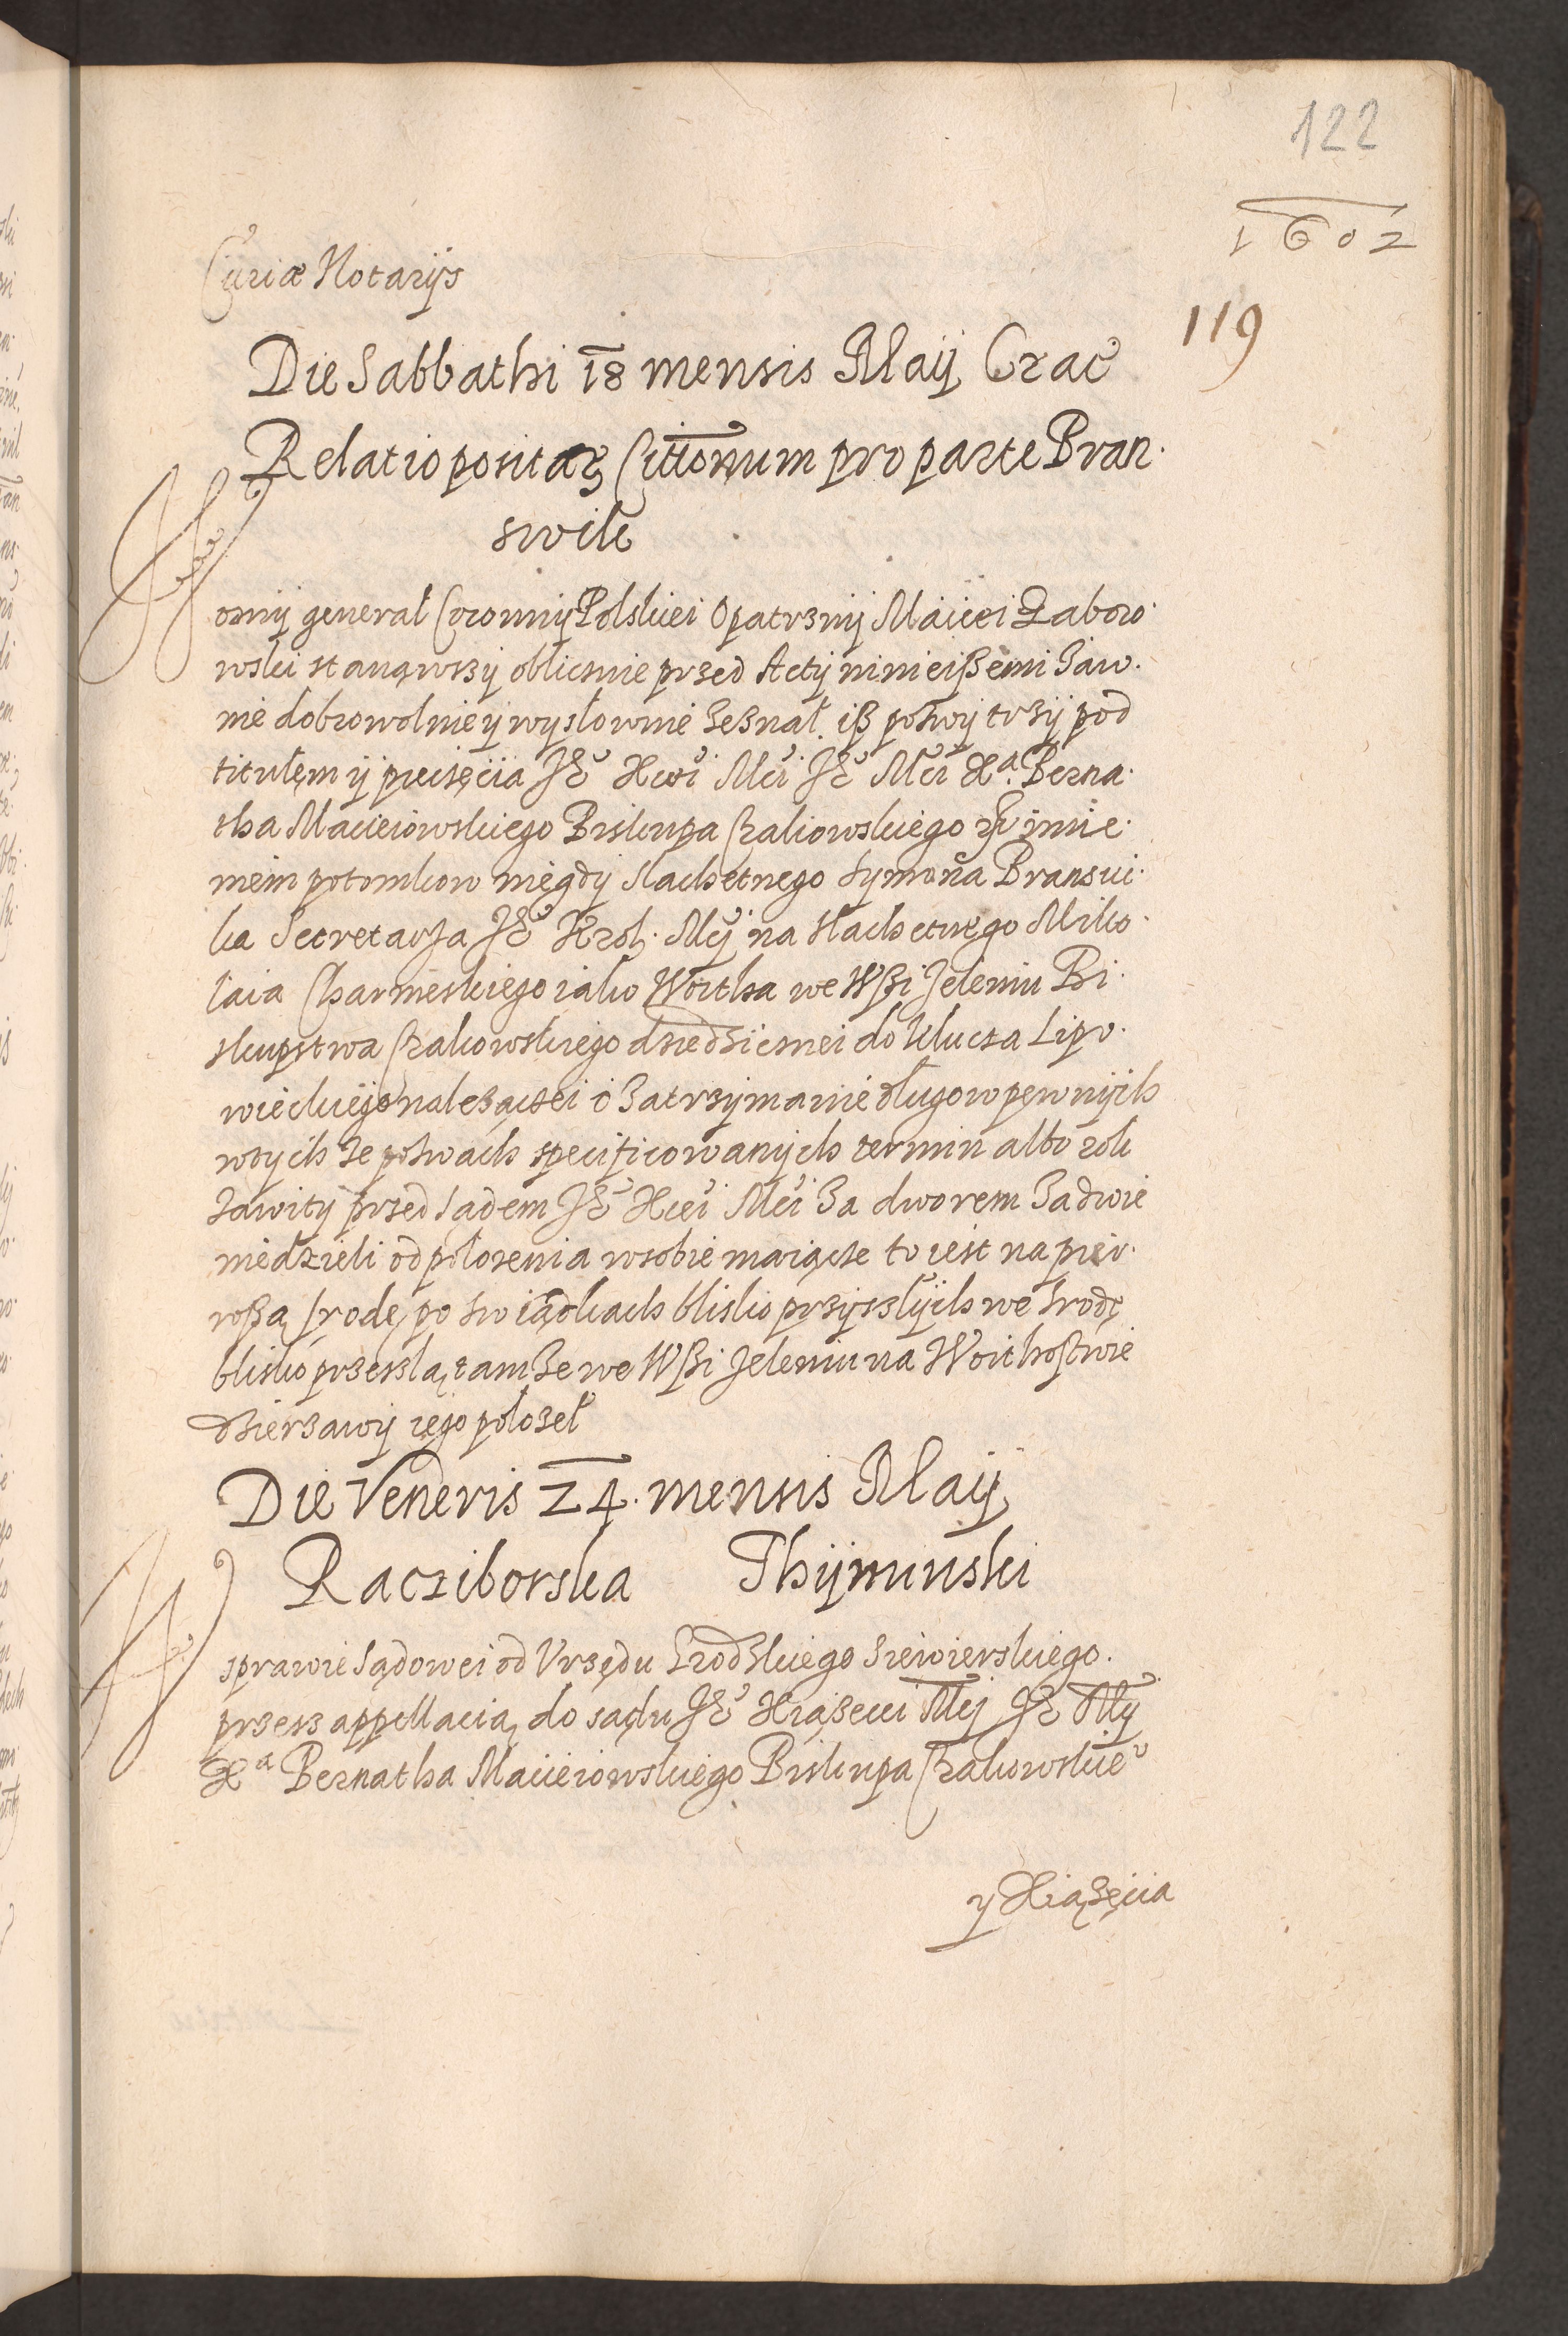 122
1602
119
Curiæ Notarijs
Die Sabbathi 18 mensis Maij Crac
Relatio positaꝝ Citionum pro parte Bran
swik
Wozny generał Coronny Polskiei Opatrzny Maciei Zaboro
wski stanąwszy oblicznie przed Acty ninieißemi Jaw
nie dobrowolnie y wysłownie zeznał iß pozwy trzy pod
titułem y pieczęcia Je° Xcei Mci Je° Mci Xa. Berna
tha Macieiowskiego Biskupa Krakowskiego imie
niem potomkow niegdy slachetnego Symona Bransui
ka Secretarza Je° Krol. Mcy na slachetnego Miko
laia Charmeskiego iako Woitha we Wßi Jeleniu Bi
skupstwa Krakowskiego dziedzicznei do klucza Lipo
wieckiego nalezączei o zatrzymanie długow pewnych
wtych ze pozwach specificowanych termin albo rok
zawity przed sądem Je° Xcei Mci za dworem za dwie
niedzieli od polozenia wsobie maiącze to iest na pier
wßą srodę po swiątkach blisko przyszłych we srodę
blisko przeszlą tamze we Wßi Jeleniu na Woithostwie
dzierzawy iego polozeł
Die Veneris 24. mensis Maij
Racziborska Thyminski
W sprawie Sądowei od Vrzędu Grodzkiego Siewierskiego
przess appellacią do sądu Je° Xiązecei Mcj Je° Mcy
Xa Bernatha Macieiowskiego Biskupa Krakowskie°
y Xiązęcia